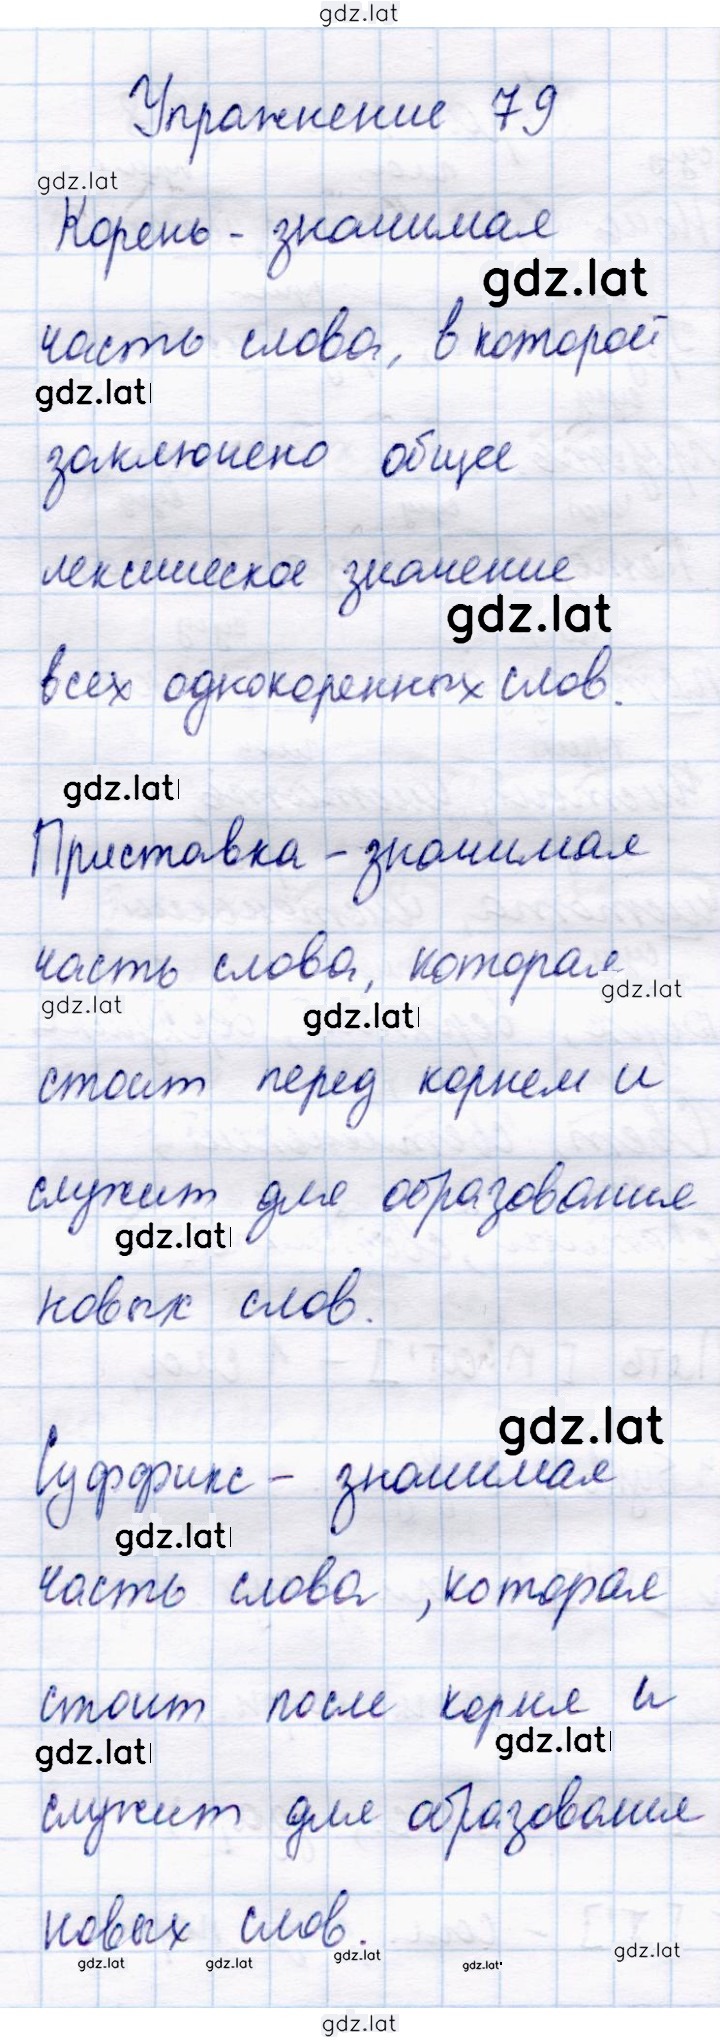 gdz.lat
Упражнение 79
gdz.lat
Корень - значимая
gdz.lat
часть слова, в которой
gdz.lat
заключено общее
лексическое значение
gdz.lat
всех однокоренных слов.
gdz.lat
Приставка - значимая
часть слова, которая
gdz.lat gdz.lat gdz.lat
стоит перед корнем и
служит для образования
gdz.lat
новых слов.
gdz.lat
Суффикс - значимая
gdz.lat
часть слова, которая
стоит после корня и
gdz.lat gdz.lat
служит для образования
новых слов.
gdz.lat gdz.lat gdz.lat gdz.lat gdz.lat
gdz.lat